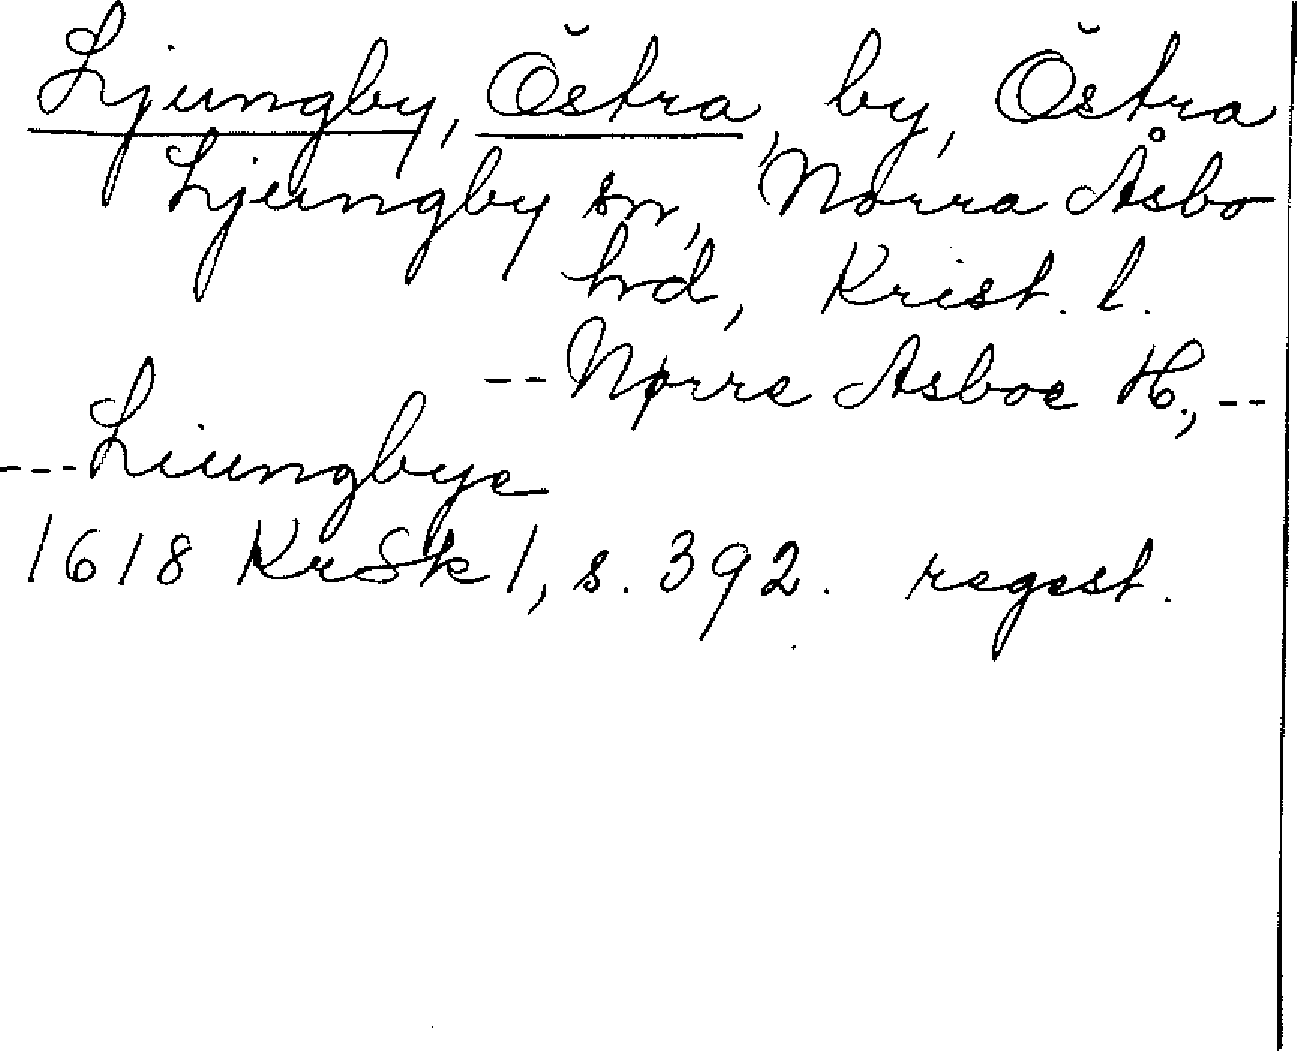 Ljungby, Östra, by, Östra
Ljungby sn, Norra Åsbo
hd, Krist. l.
-- Nørre Asboe H., --
--- Liungbye
1618 KrSk 1, s. 392. regest.